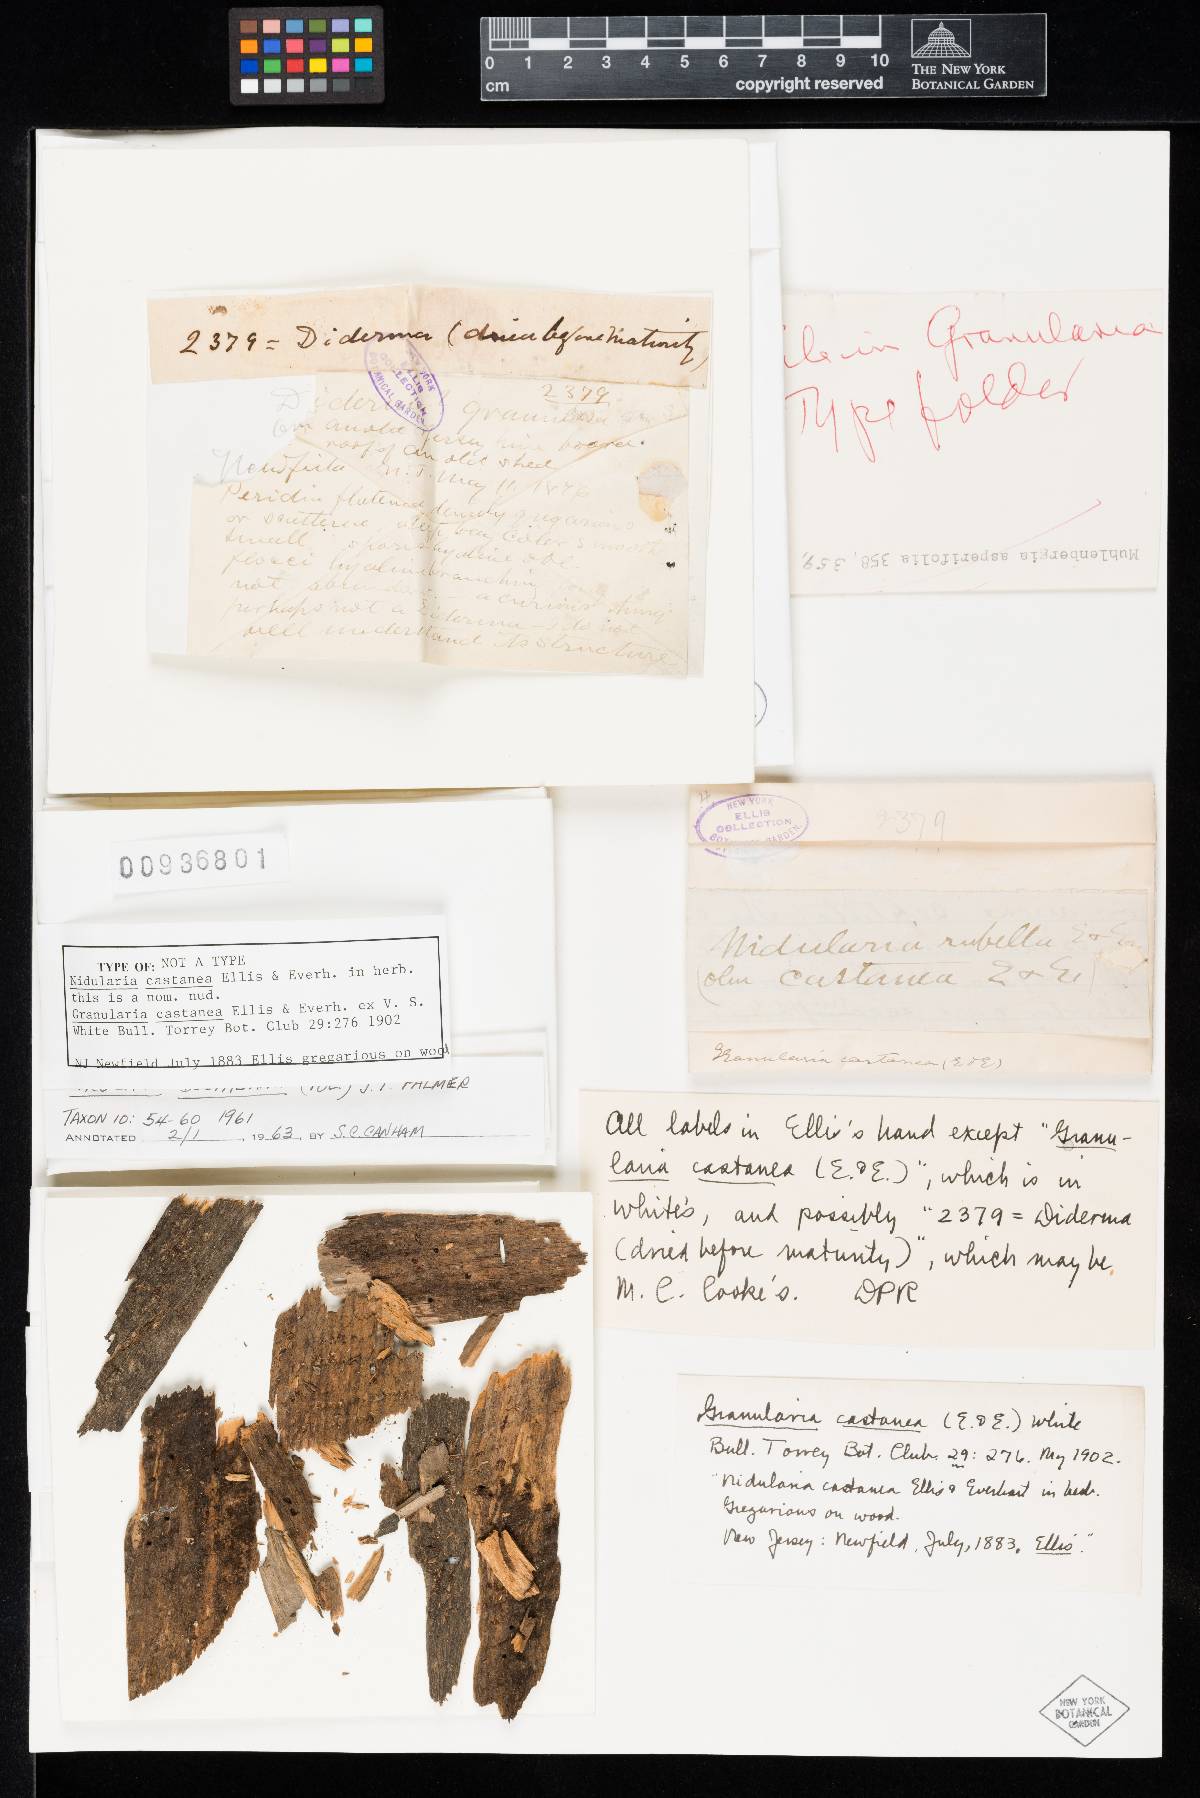 0 1 2 3 4 5 6 7 8 9 10
cm
copyright reserved
THE NEW YORK
BOTANICAL GARDEN
2379 = Diderma (dried before maturity)
2379
Diderma granulosa
On an old Jersey pine board
roof of an old shed
Newfield N.J. May 11 1876
Peridia flatened densely gregarious
or scattered,
small, spores hyaline
flocci hyaline branching
not abundant - a curious thing
perhaps not a Diderma - I do not
well understand its structure
File in Granularia
Type folder
Muhlenbergia asperifolia 358, 359,
NEW YORK
ELLIS
COLLECTION
BOTANICAL GARDEN.
2379
Nidularia rubella E & Ev
(olim castanea E & E)
Granularia castanea (E&E)
00936801
TYPE OF: NOT A TYPE
Nidularia castanea Ellis & Everh. in herb.
this is a nom. nud.
Granularia castanea Ellis & Everh. ex V. S.
White Bull. Torrey Bot. Club 29:276 1902
NJ Newfield July 1883 Ellis gregarious on wood
(TUL.) J.T. PALMER
TAXON 10: 54-60 1961
ANNOTATED 2/1, 1963, BY S.C. CANHAM
All labels in Ellis's hand except "Granu-
laria castanea (E.&E.)", which is in
White's, and possibly "2379 = Diderma
(dried before maturity)", which may be
M. C. Cooke's. DPR
Granularia castanea (E.&E.) White
Bull. Torrey Bot. Club. 29: 276. My 1902.
"Nidularia castanea Ellis & Everhart in herb.
Gregarious on wood.
New Jersey: Newfield, July, 1883, Ellis."
NEW YORK
BOTANICAL
GARDEN